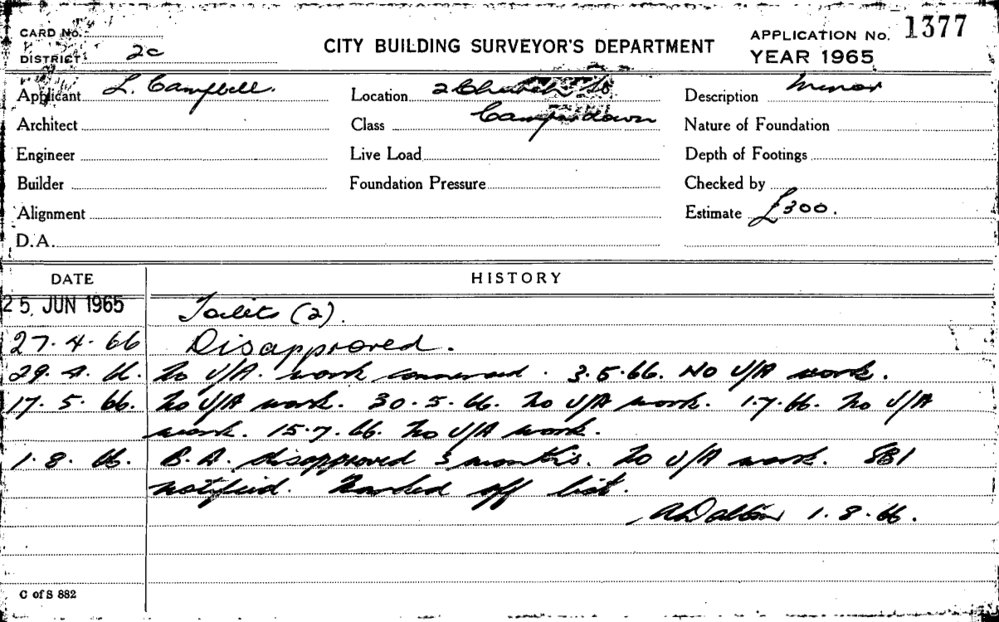 CARD No.
DISTRICT 2c
CITY BUILDING SURVEYOR'S DEPARTMENT
APPLICATION No. 1377
YEAR 1965
Applicant L. Campbell. Location 2 Church St Description Minor
Architect Class Camperdown Nature of Foundation
Engineer Live Load Depth of Footings
Builder Foundation Pressure Checked by
Alignment Estimate £300.
D.A.
DATE HISTORY
25 JUN 1965 Toilets (2).
27.4.66 Disapproved.
29.4.66. No U/A. work commenced. 3.5.66. No U/A work.
17.5.66. No U/A work. 30.5.66. No U/A work. 1.7.66. No U/A
work. 15.7.66. No U/A work.
1.8.66. B.A. disapproved 3 months. No U/A work. SBI
notified. Marked off list.
A Dalton 1.8.66.
C of S 882